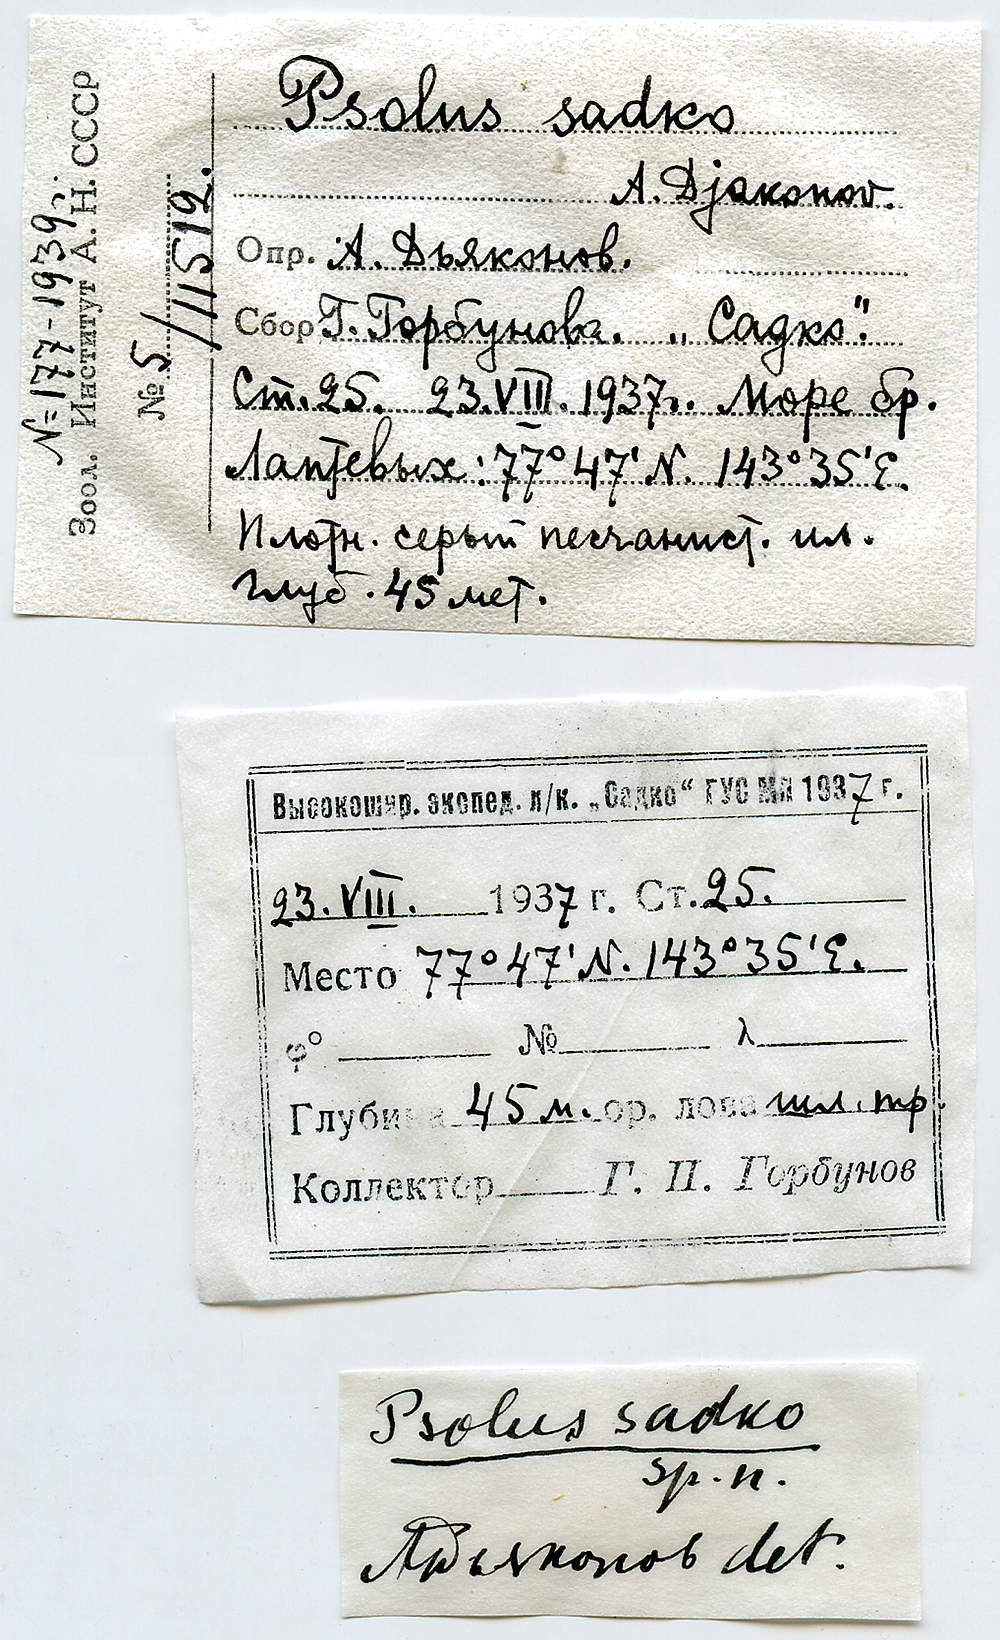 Зоол. Институт А. Н. СССР
N=177-1939г.
№ 5/11512.
Psolus sadko
A. Djakonov.
Опр. А. Дьяконов.
Сбор Г. Горбунова. „Садко".
Ст. 25. 23.VIII.1937г. Море бр.
Лаптевых: 77°47'N. 143°35'E.
Плотн. серый песчанист. ил.
Глуб. 45 мет.
Высокошир. экспед. л/к. „Садко“ ГУС МП 1937 г.
23.VIII. 1937 г. Ст. 25.
Место 77°47'N. 143°35'E.
φ° № λ
Глубина 45 м. ор. лова шл. тр.
Коллектор Г. П. Горбунов
Psolus sadko
sp. n.
АДьяконов det.